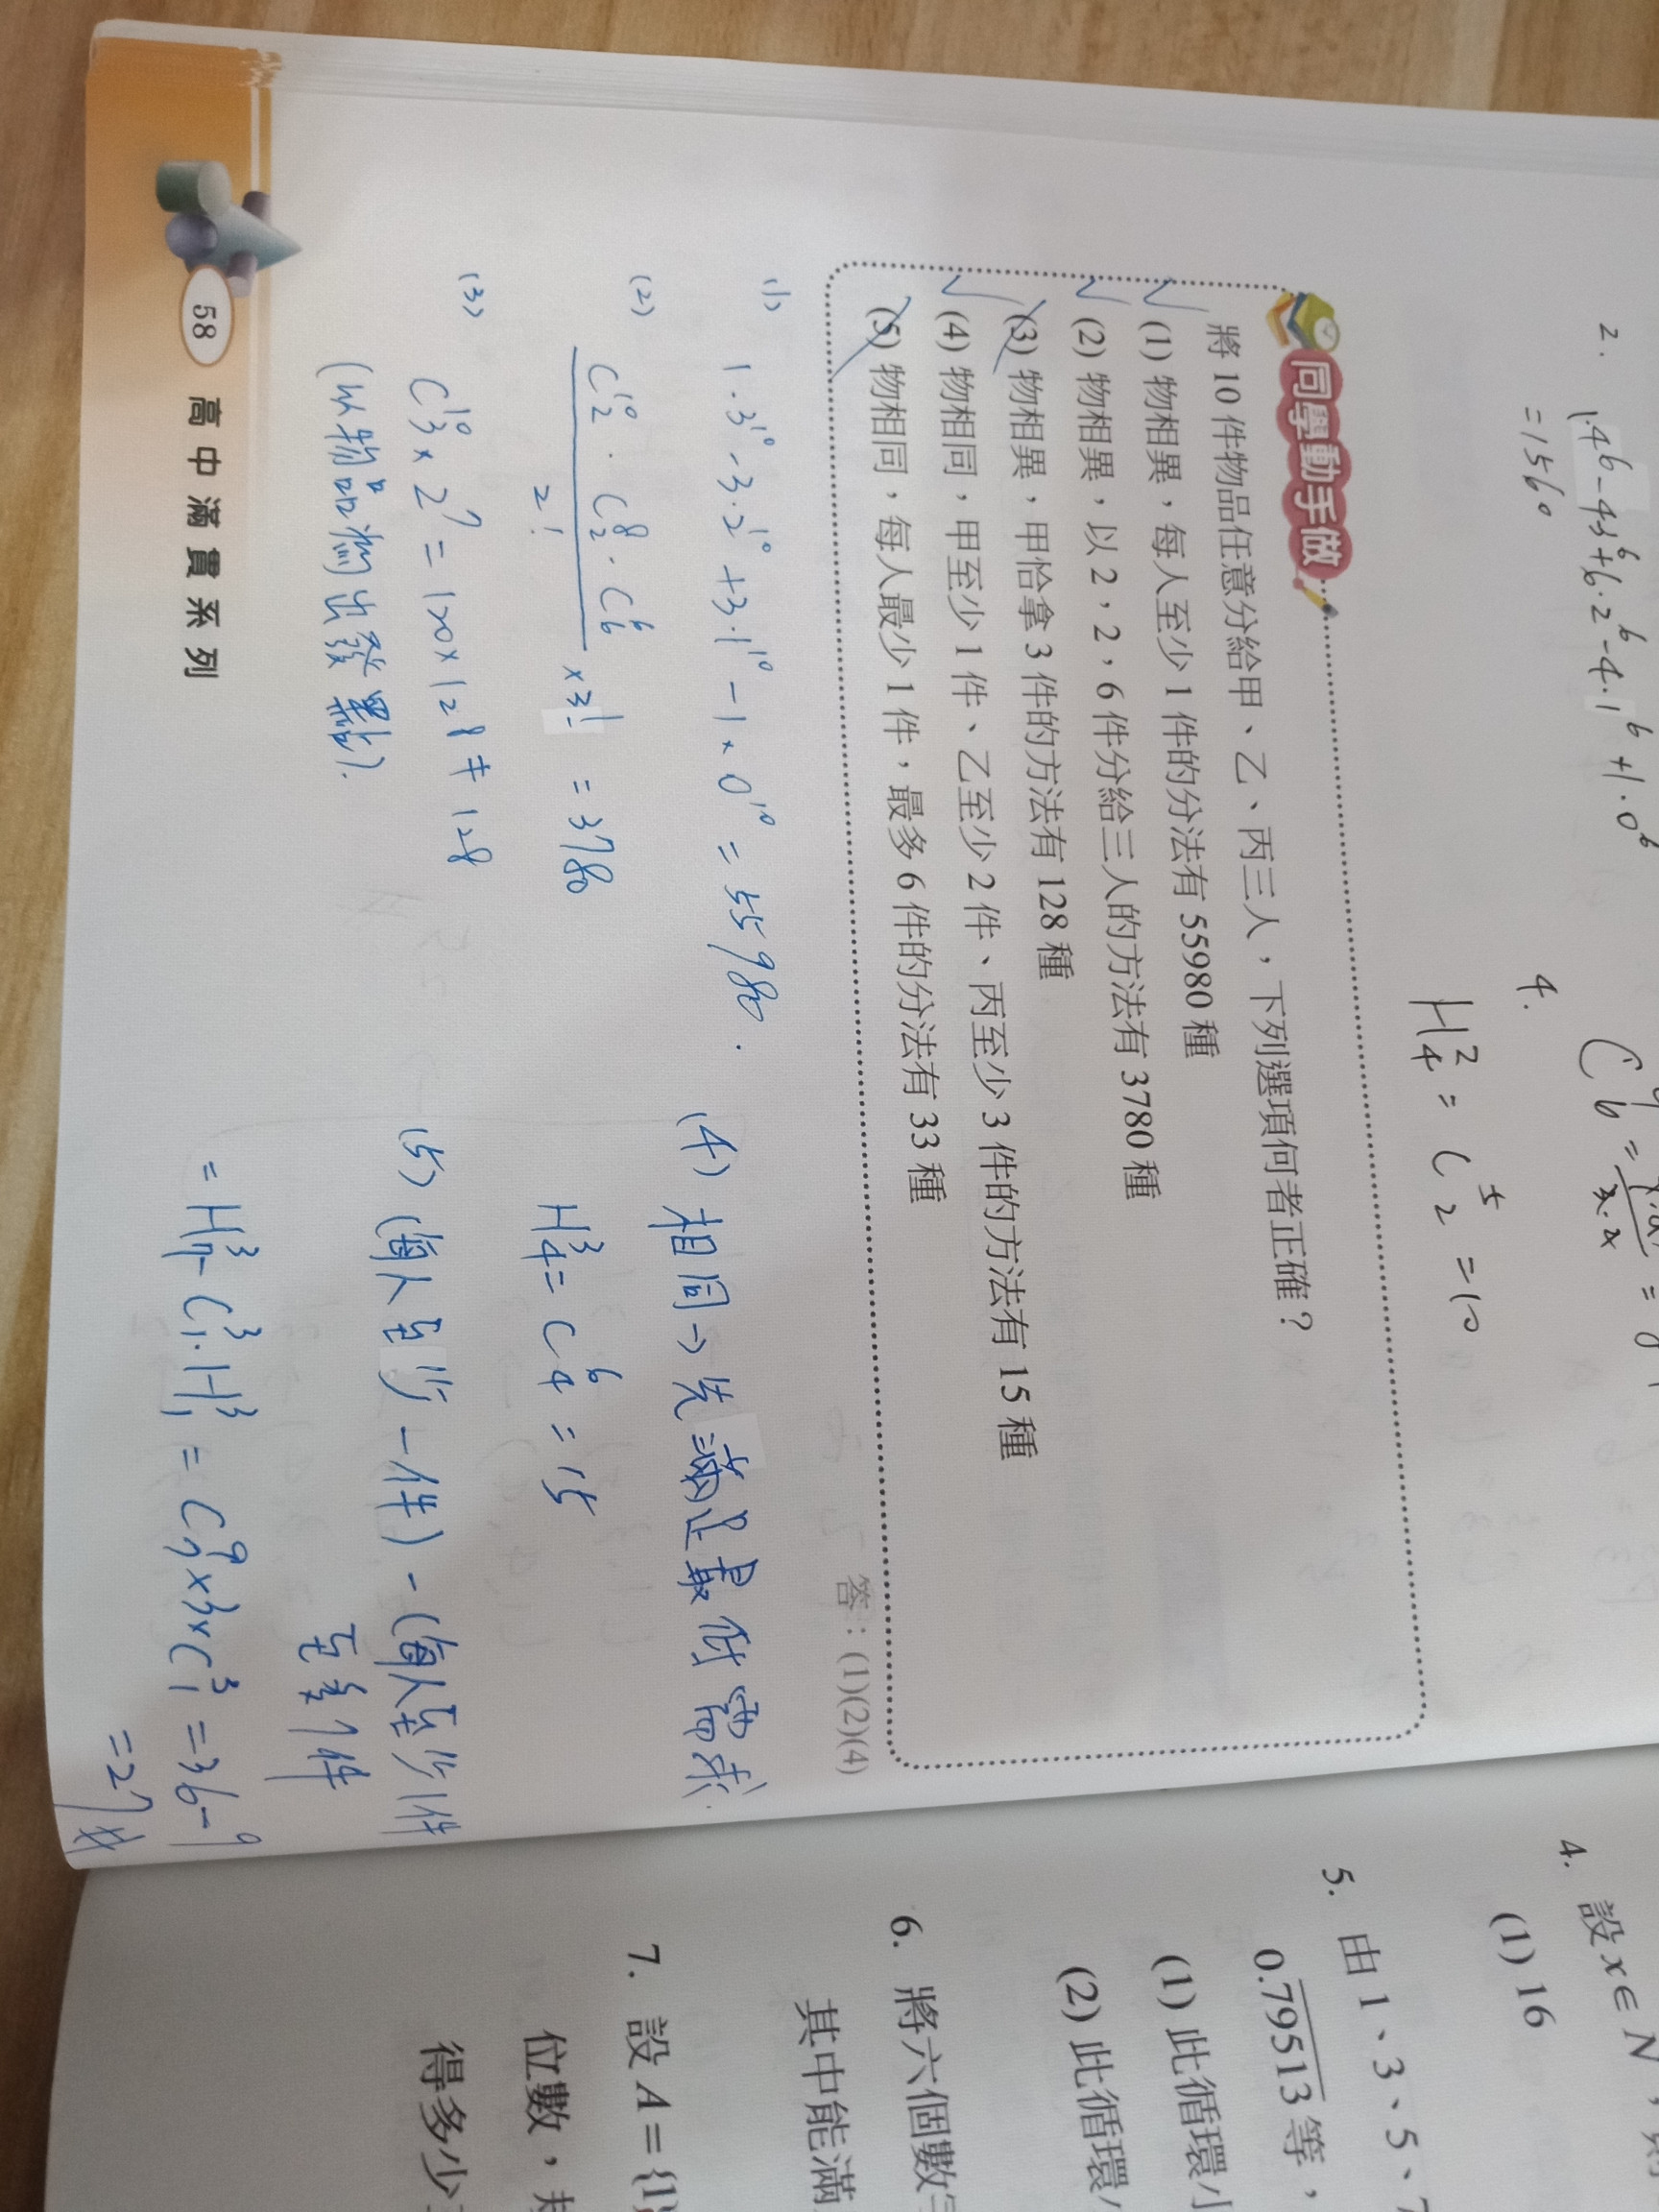 2.
1·4⁶-4·3⁶+6·2⁶-4·1⁶+1·0⁶
=1560
4.
H²₄ = C⁵₂ = 10
同學動手做
將 10 件物品任意分給甲、乙、丙三人，下列選項何者正確？
(1) 物相異，每人至少 1 件的分法有 55980 種
(2) 物相異，以 2，2，6 件分給三人的方法有 3780 種
(3) 物相異，甲恰拿 3 件的方法有 128 種
(4) 物相同，甲至少 1 件、乙至少 2 件、丙至少 3 件的方法有 15 種
(5) 物相同，每人最少 1 件，最多 6 件的分法有 33 種
答：(1)(2)(4)
(1)
1·3¹⁰-3·2¹⁰+3·1¹⁰-1×0¹⁰=55980.
(2)
C¹⁰₂·C⁸₂·C⁶₆
2!
×3! =3780
(3)
C¹⁰₃×2⁷=120×128≠128
(以物品為出發點).
(4) 相同→先滿足最低需求.
H³₄=C⁶₄=15
(5) (每人至少一件)-(每人至少1件
至多7件
=H³₇-C³₁·H³₁=C⁹₇×3×C³₁=36-9
=27
58 高中滿貫系列
4. 設 x∈N，
(1) 16
5. 由 1、3、5、7
0.79513 等，
(1) 此循環小
(2) 此循環
6. 將六個數
其中能滿
7. 設 A={1
位數，
得多少